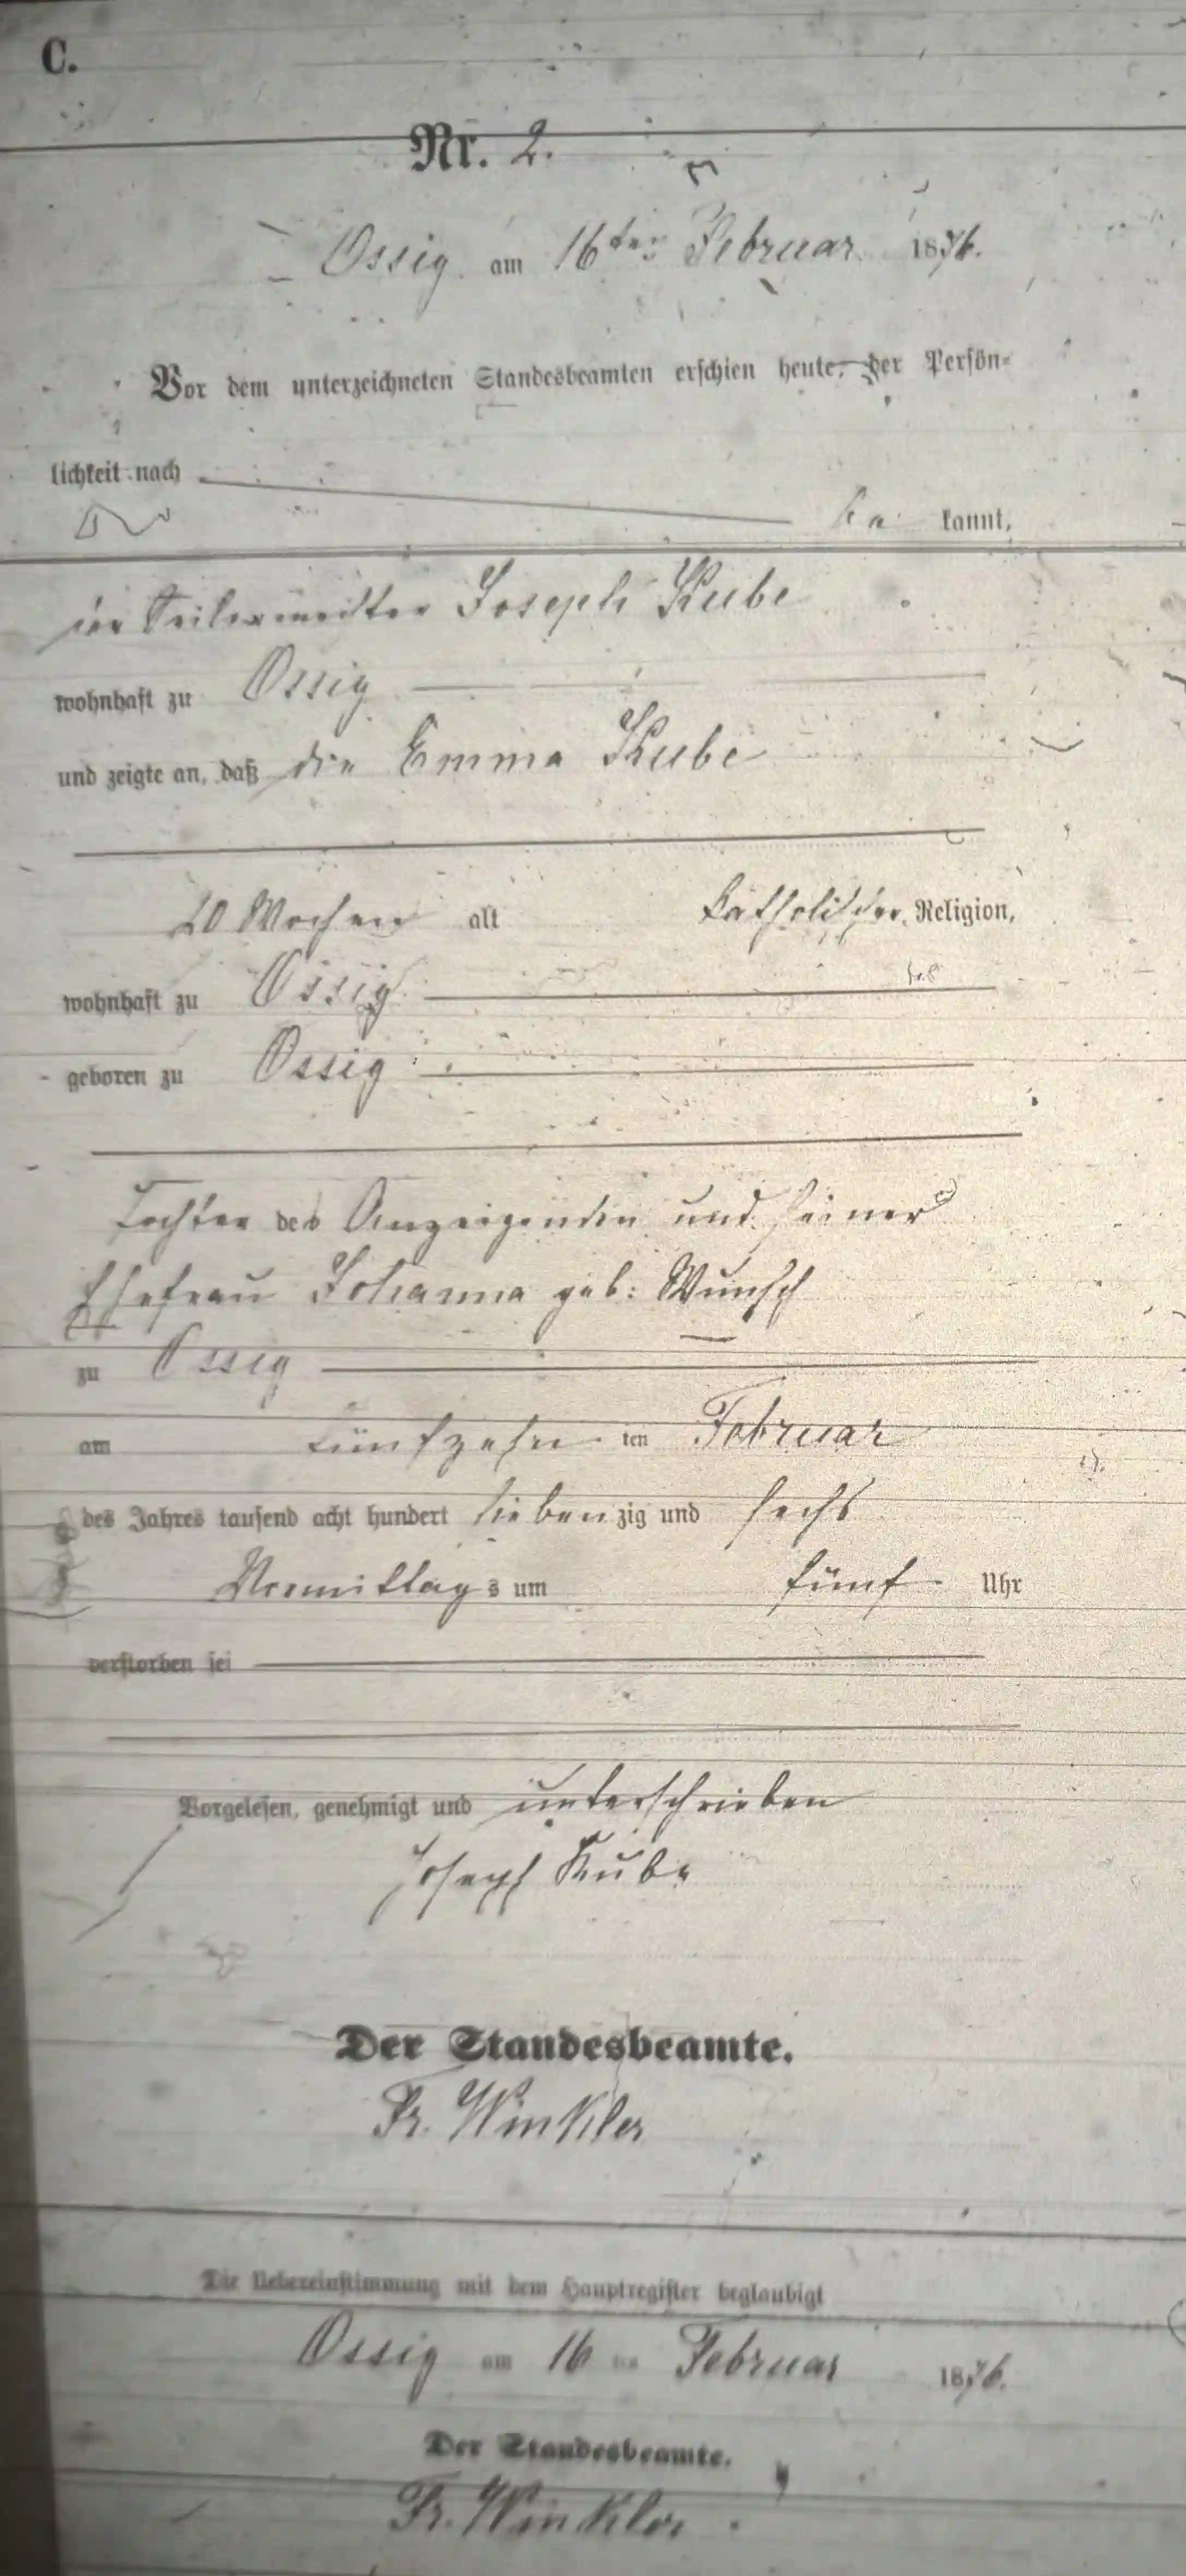 C.
Nr. 2.
Ossig am 16ten Februar 1876.
Vor dem unterzeichneten Standesbeamten erschien heute, der Persön-
lichkeit nach
be kannt,
der Joseph Kube
wohnhaft zu Ossig
und zeigte an, daß die Emma Kube
Wochen alt katholischer Religion,
wohnhaft zu Ossig
geboren zu Ossig
Tochter des Anzeigenden und seiner
Ehefrau Johanna geb: Wunsch
zu Ossig
am fünfzehn ten Februar
des Jahres tausend acht hundert sieben zig und sechs
Vormittags um fünf Uhr
verstorben sei
Vorgelesen, genehmigt und unterschrieben
Joseph Kube
Der Standesbeamte.
Fr. Winkler
Die Uebereinstimmung mit dem Hauptregister beglaubigt
Ossig am 16 ten Februar 1876.
Der Standesbeamte.
Fr. Winkler.